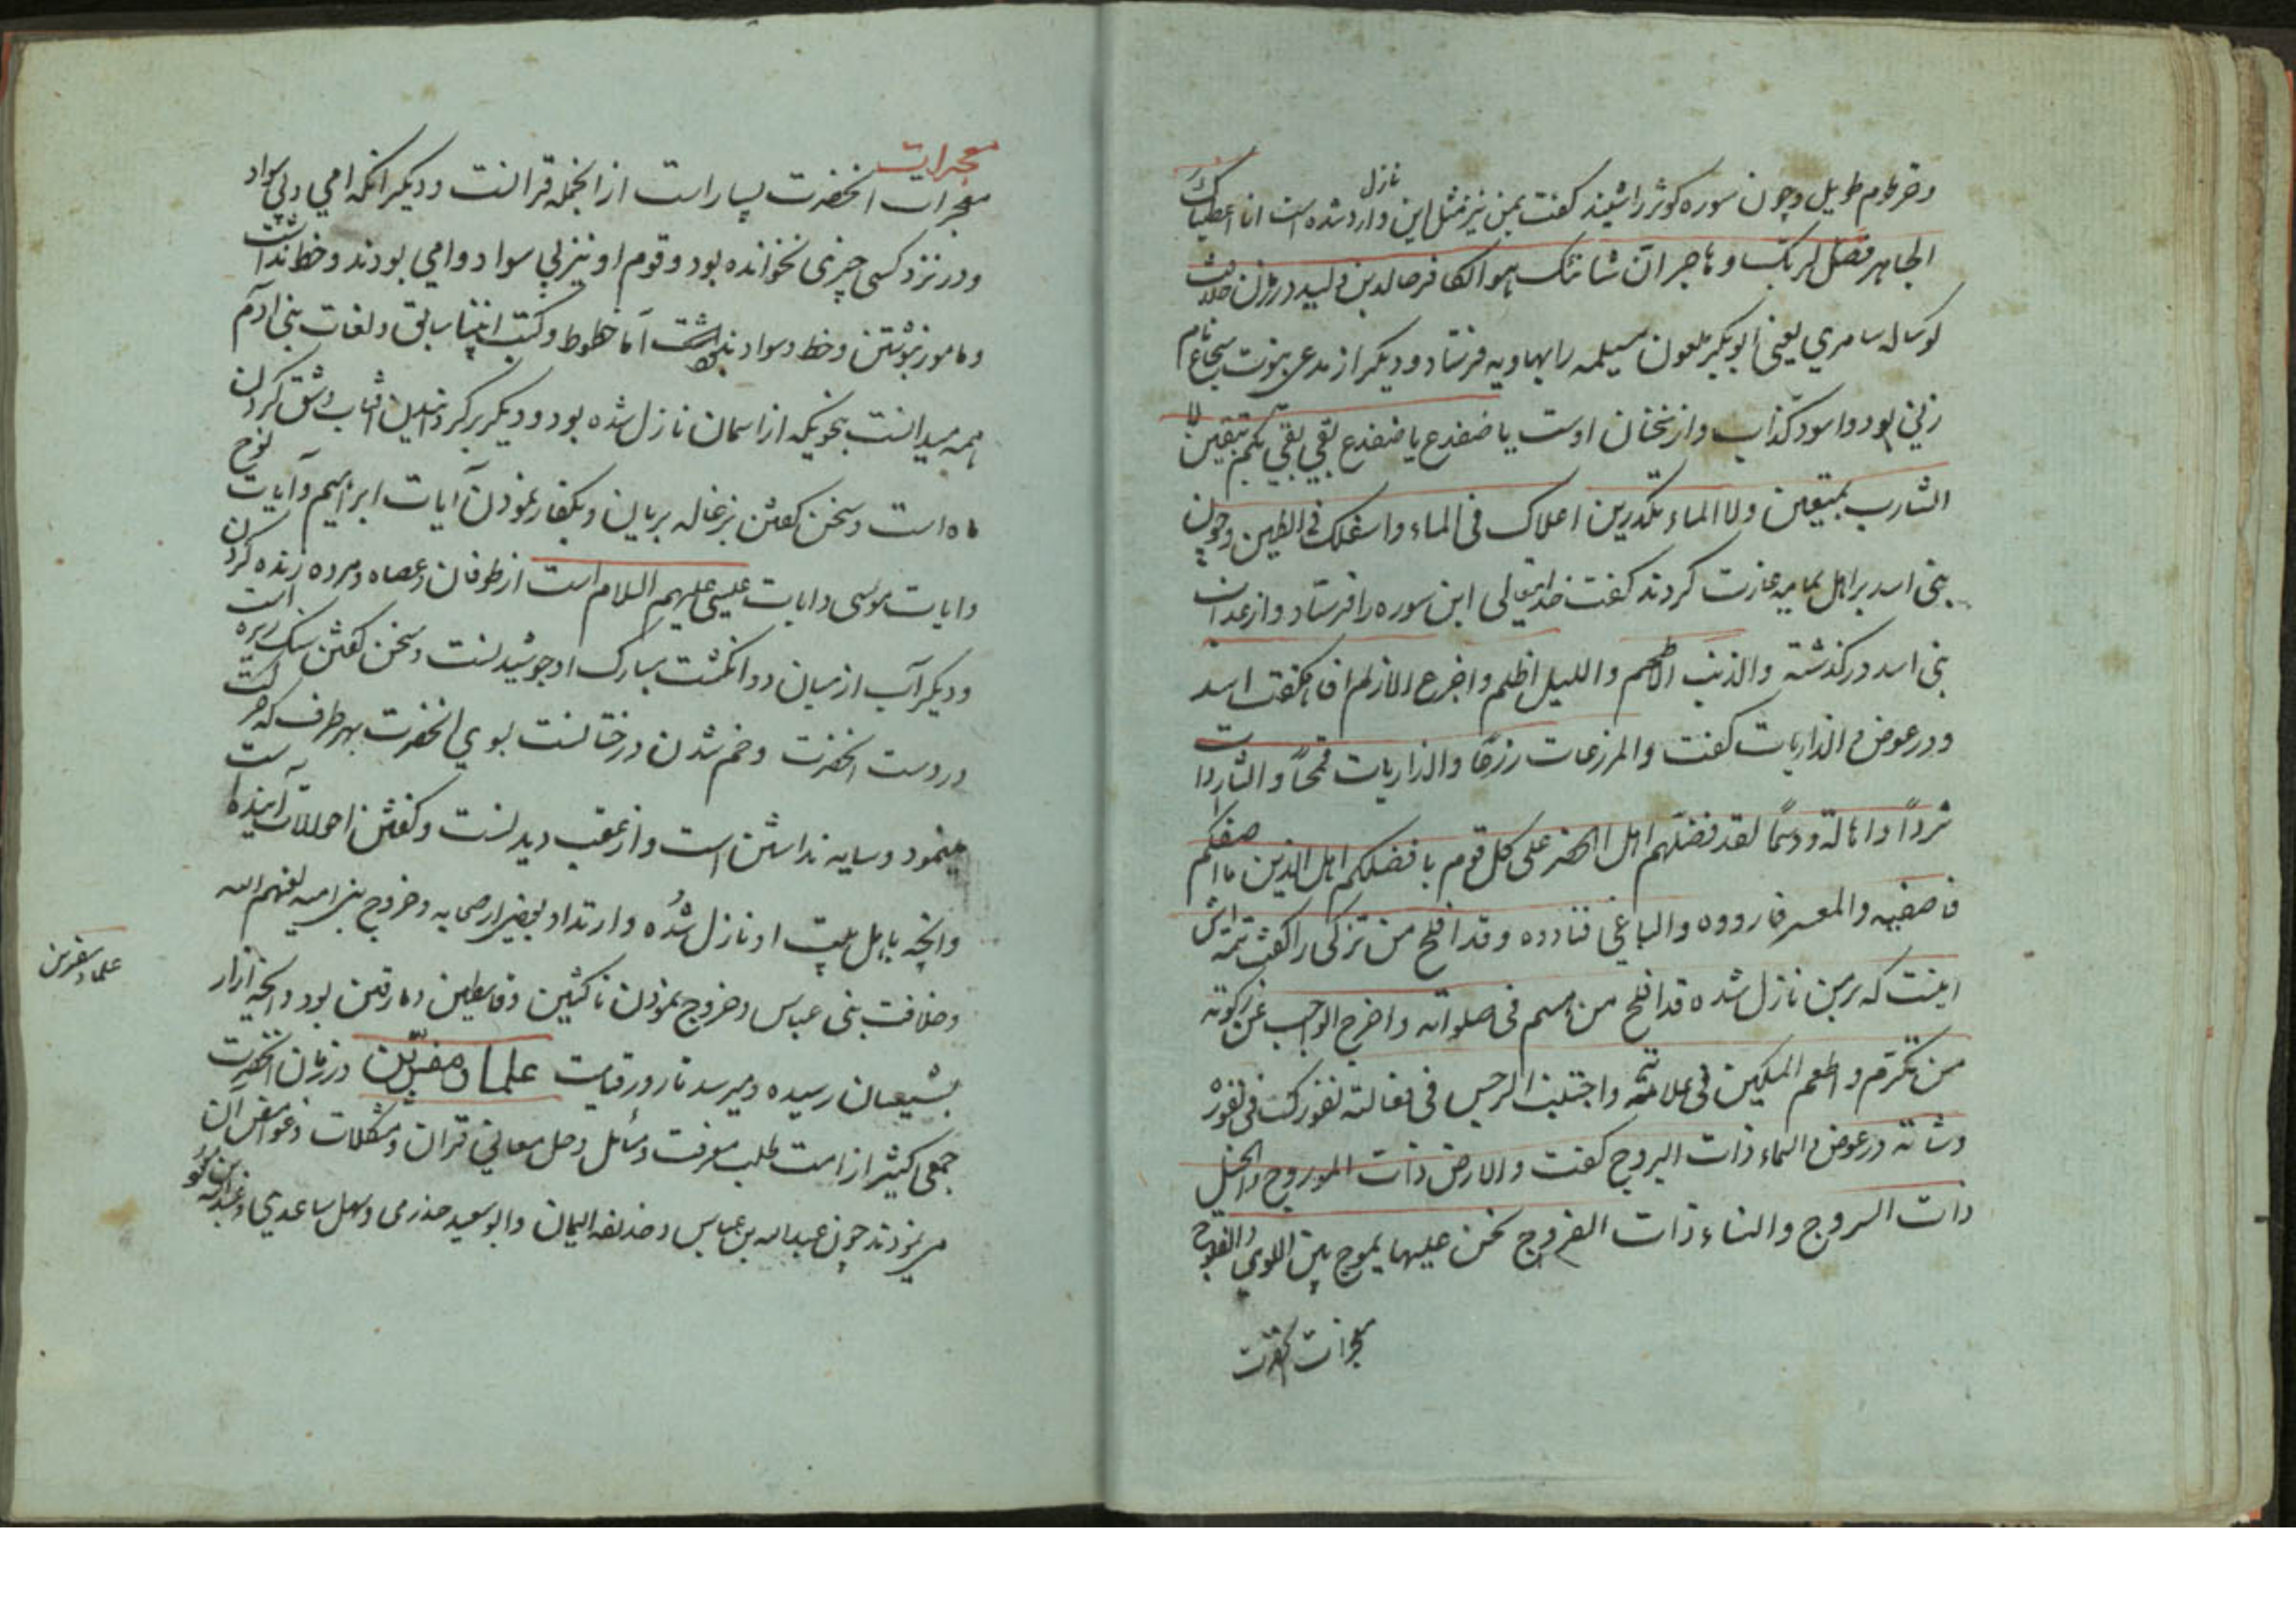 وخرطوم طویل وچون سوره کوثر را شنید کفت بمن نیز مثل این نازل وارد شده است انا اعطیناک
الجاهر فصل لربک و هاجر ان شانئک هو الکافر خالد بن ولید در زمان خلافت
کوساله سامری یعنی ابوبکر ملعون مسیلمه را بهاویه فرستاد و دیکر از مدعی نبوت سجاع نام
زنی بود و اسود کذاب و از سخنان اوست یا ضفدع یا ضفدع نقی نقی لکم تنقین لا
الشارب تمنعین ولا الماء تکدرین اعلاک فی الماء واسفلک فی الطین وچون
بنی اسد بر اهل یمامه غارت کردند کفت خدایتعالی این سوره را فرستاد و از عداوت
بنی اسد درکذشته والذئب الاطحم واللیل اظلم و الازلم انتهکت اسد
ودر عوض والذاریات کفت والمزرعات زرعا والذاریات قمحا والثاردات
ثردا و اهالة ودسما لقد فضلهم اهل علی کل قوم با فضلکم اهل الذین ما صفکم
والمعسر فارووه والباغی فناروه وقد افلح من تزکی را کفت تتمه اش
اینست که بر من نازل شده قد افلح من هیمم فی صلواته واخرج الواجب من زکوته
من تکرم واطعم المسکین فی واجتنب الرجس فی
وشاته در عوض والسماء ذات البروج کفت والارض ذات المروج والخیل
ذات السروج والنساء ذات الفروج نحن علیها یموج بین اللوی والفلوج
معجزات آنحضرت
معجزات
معجزات انحضرت بسیار است از انجمله قرانست ودیکر انکه امی وبی سواد
ودر نزد کسی چیزی نخوانده بود وقوم او نیز بی سواد وامی بودند وخط نداشت
ومامور بنوشتن وخط وسواد نداشت اما خطوط وکتب انبیا سابق ولغات بنی آدم
همه میدانست بنحویکه از اسمان نازل شده بود ودیکر برکردانیدن افتاب وشق کردن
ماه است وسخن کفتن بزغاله بریان وبکفار نمودن آیات ابراهیم وآیات نوح
وایات موسی وایات عیسی علیهم السلام است از طوفان وعصاه ومرده زنده کردن
ودیکر آب از میان دو انکشت مبارک او جوشیدنست وسخن کفتن سنک ریزه است
در دست انحضرت وخم شدن درختانست بوی انحضرت بهر طرف که حرکت
مینمود وسایه نداشتن است واز عقب دیدنست وکفتن احوالات آینده است
وانچه باهل بیت او نازل شده وارتداد بعضی از صحابه وخروج بنی امیه لعنهم الله
وخلافت بنی عباس وخروج نمودن ناکثین وقاسطین ومارقین بود وانچه آزار
بشیعیان رسیده ومیرسد تا روز قیامت علما ومفسرین در زمان انحضرت
جمعی کثیر از امت طلب معرفت ومسائل وحل معانی قران ومشکلات وغوامض ان
مینمودند چون عبدالله بن عباس وحذیفه الیمان وابو سعید خدری وسهل ساعدی وعبدالله بن مسعود
علما ومفسرین